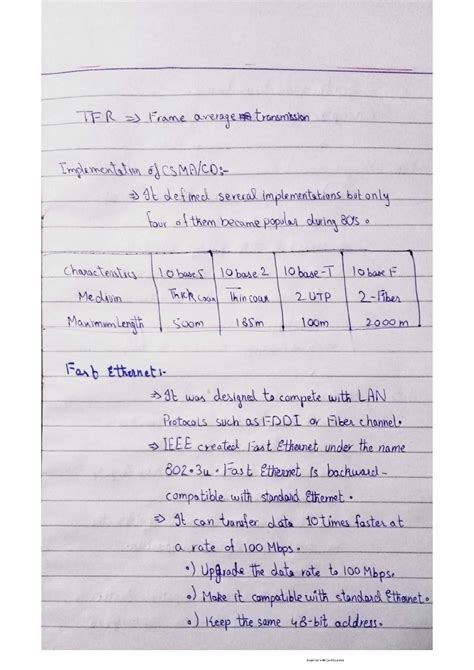 TFR => Frame average transmission
Implementation of CSMA/CD:-
=> It defined several implementations but only
four of them became popular during 80's.
Characteristics 10base5 10base2 10base-T 10base F
Medium Thick coax Thin coax 2 UTP 2-Fiber
Maximum Length 500m 185m 100m 2000m
Fast Ethernet:-
=> It was designed to compete with LAN
Protocols such as FDDI or Fiber channel.
=> IEEE created Fast Ethernet under the name
802.3u. Fast Ethernet is backward-
compatible with standard Ethernet.
=> It can transfer data 10 times faster at
a rate of 100 Mbps.
•) Upgrade the data rate to 100 Mbps.
•) Make it compatible with standard Ethernet.
•) Keep the same 48-bit address.